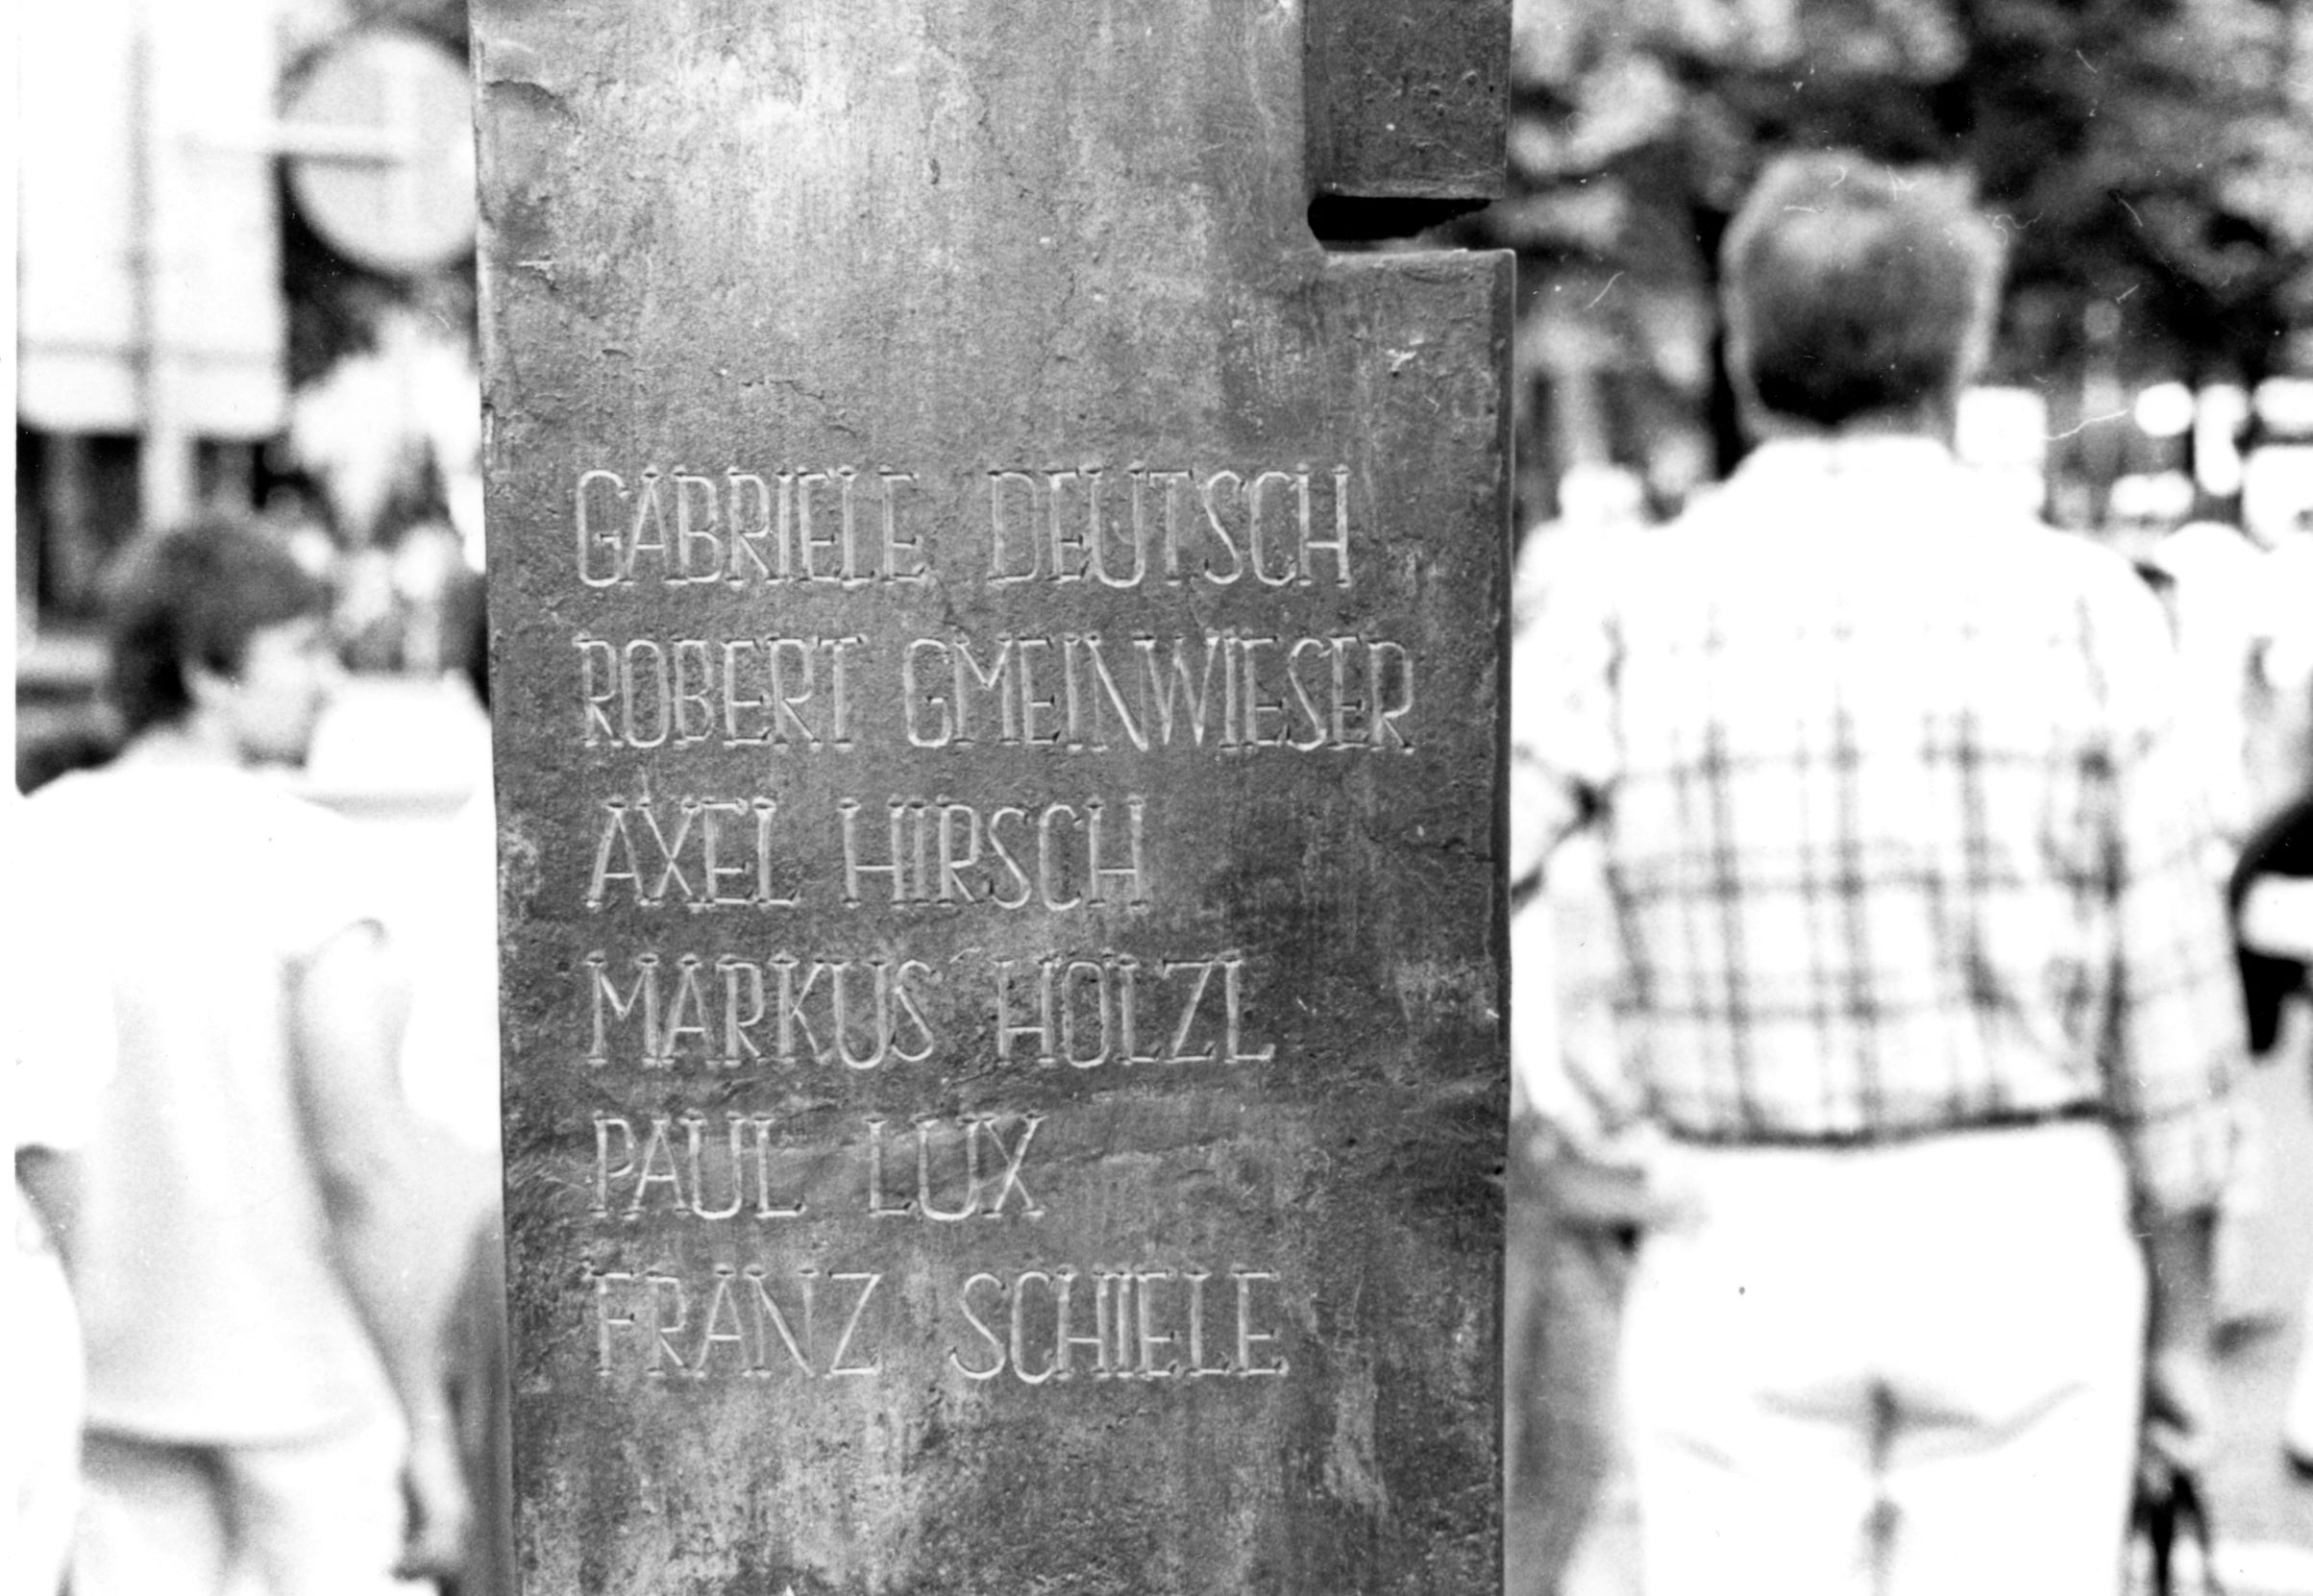 GABRIELE DEUTSCH
ROBERT GMEINWIESER
AXEL HIRSCH
MARKUS HÖLZL
PAUL LUX
FRANZ SCHIELE